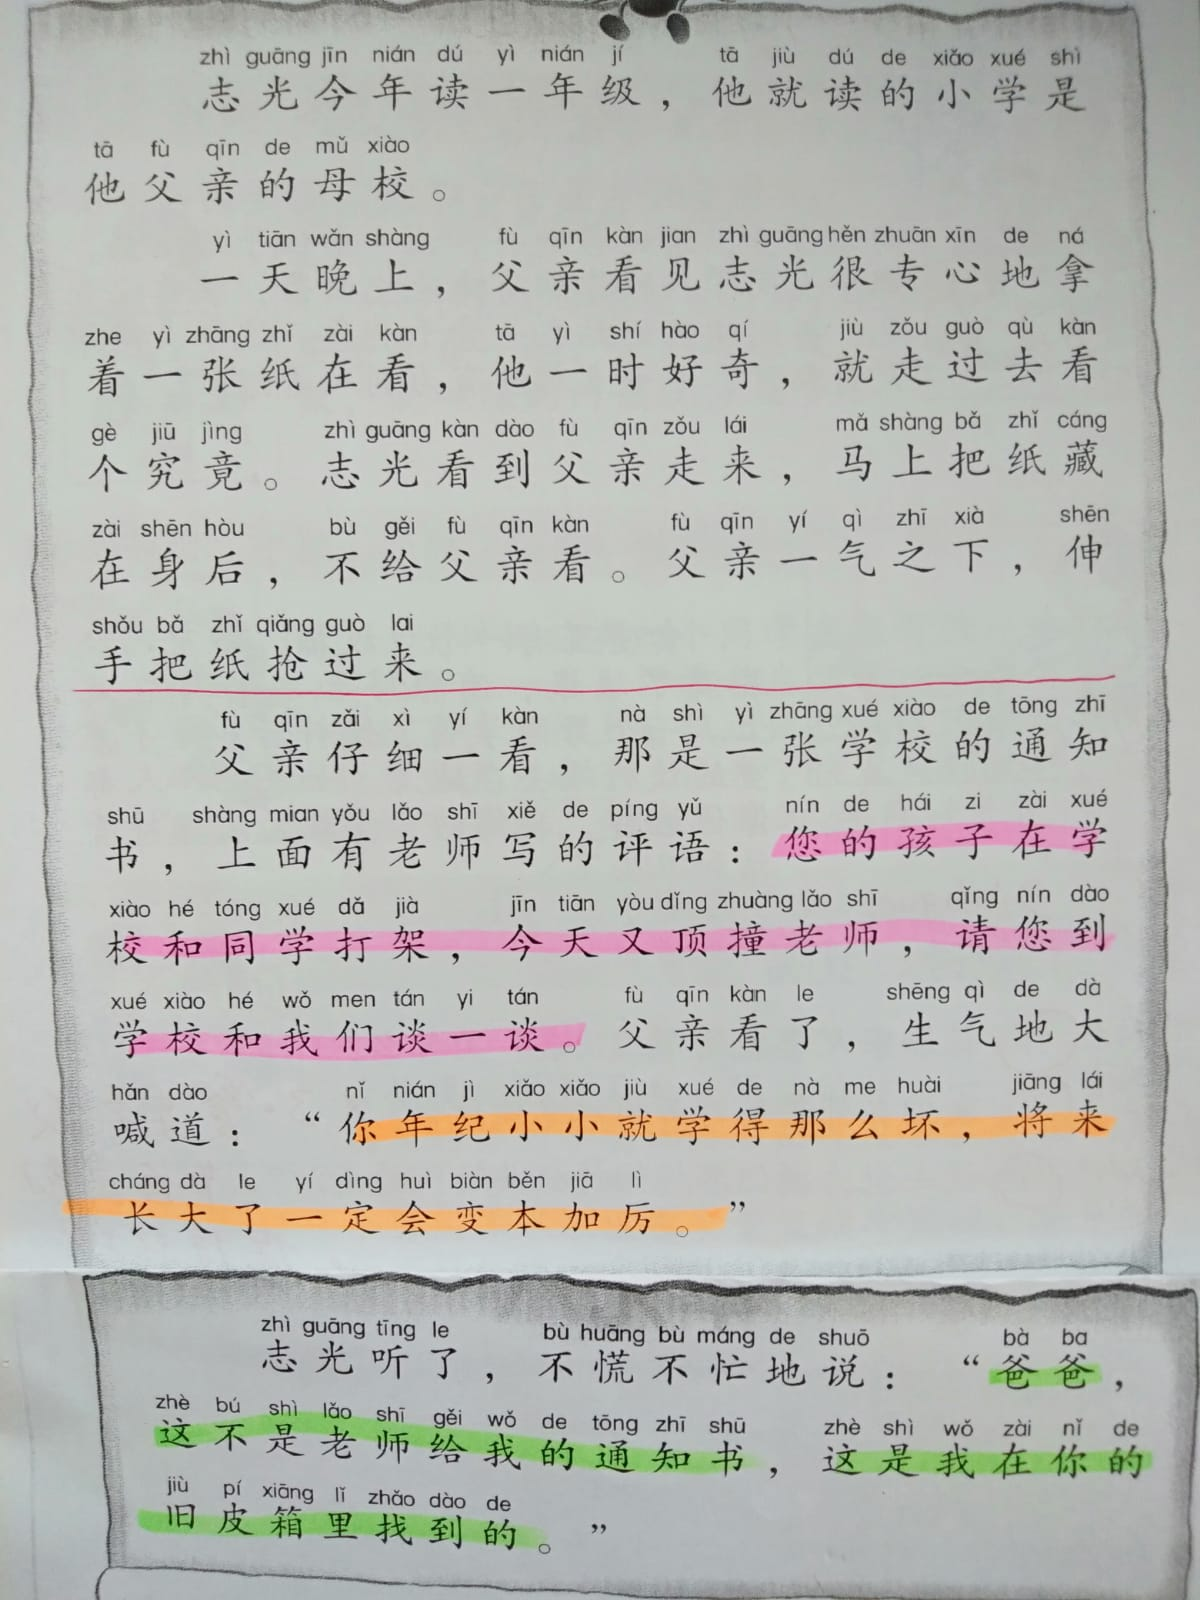 zhì guāng jīn nián dú yì nián jí tā jiù dú de xiǎo xué shì
志光今年读一年级，他就读的小学是
tā fù qīn de mǔ xiào
他父亲的母校。
yì tiān wǎn shàng fù qīn kàn jian zhì guāng hěn zhuān xīn de ná
一天晚上，父亲看见志光很专心地拿
zhe yì zhāng zhǐ zài kàn tā yì shí hào qí jiù zǒu guò qù kàn
着一张纸在看，他一时好奇，就走过去看
gè jiū jìng zhì guāng kàn dào fù qīn zǒu lái mǎ shàng bǎ zhǐ cáng
个究竟。志光看到父亲走来，马上把纸藏
zài shēn hòu bù gěi fù qīn kàn fù qīn yí qì zhī xià shēn
在身后，不给父亲看。父亲一气之下，伸
shǒu bǎ zhǐ qiǎng guò lai
手把纸抢过来。
fù qīn zǎi xì yí kàn nà shì yì zhāng xué xiào de tōng zhī
父亲仔细一看，那是一张学校的通知
shū shàng mian yǒu lǎo shī xiě de píng yǔ nín de hái zi zài xué
书，上面有老师写的评语：您的孩子在学
xiào hé tóng xué dǎ jià jīn tiān yòu dǐng zhuàng lǎo shī qǐng nín dào
校和同学打架，今天又顶撞老师，请您到
xué xiào hé wǒ men tán yi tán fù qīn kàn le shēng qì de dà
学校和我们谈一谈。父亲看了，生气地大
hǎn dào nǐ nián jì xiǎo xiǎo jiù xué de nà me huài jiāng lái
喊道：“你年纪小小就学得那么坏，将来
cháng dà le yí dìng huì biàn běn jiā lì
长大了一定会变本加厉。”
zhì guāng tīng le bù huāng bù máng de shuō bà ba
志光听了，不慌不忙地说：“爸爸，
zhè bú shì lǎo shī gěi wǒ de tōng zhī shū zhè shì wǒ zài nǐ de
这不是老师给我的通知书，这是我在你的
jiù pí xiāng lǐ zhǎo dào de
旧皮箱里找到的。”